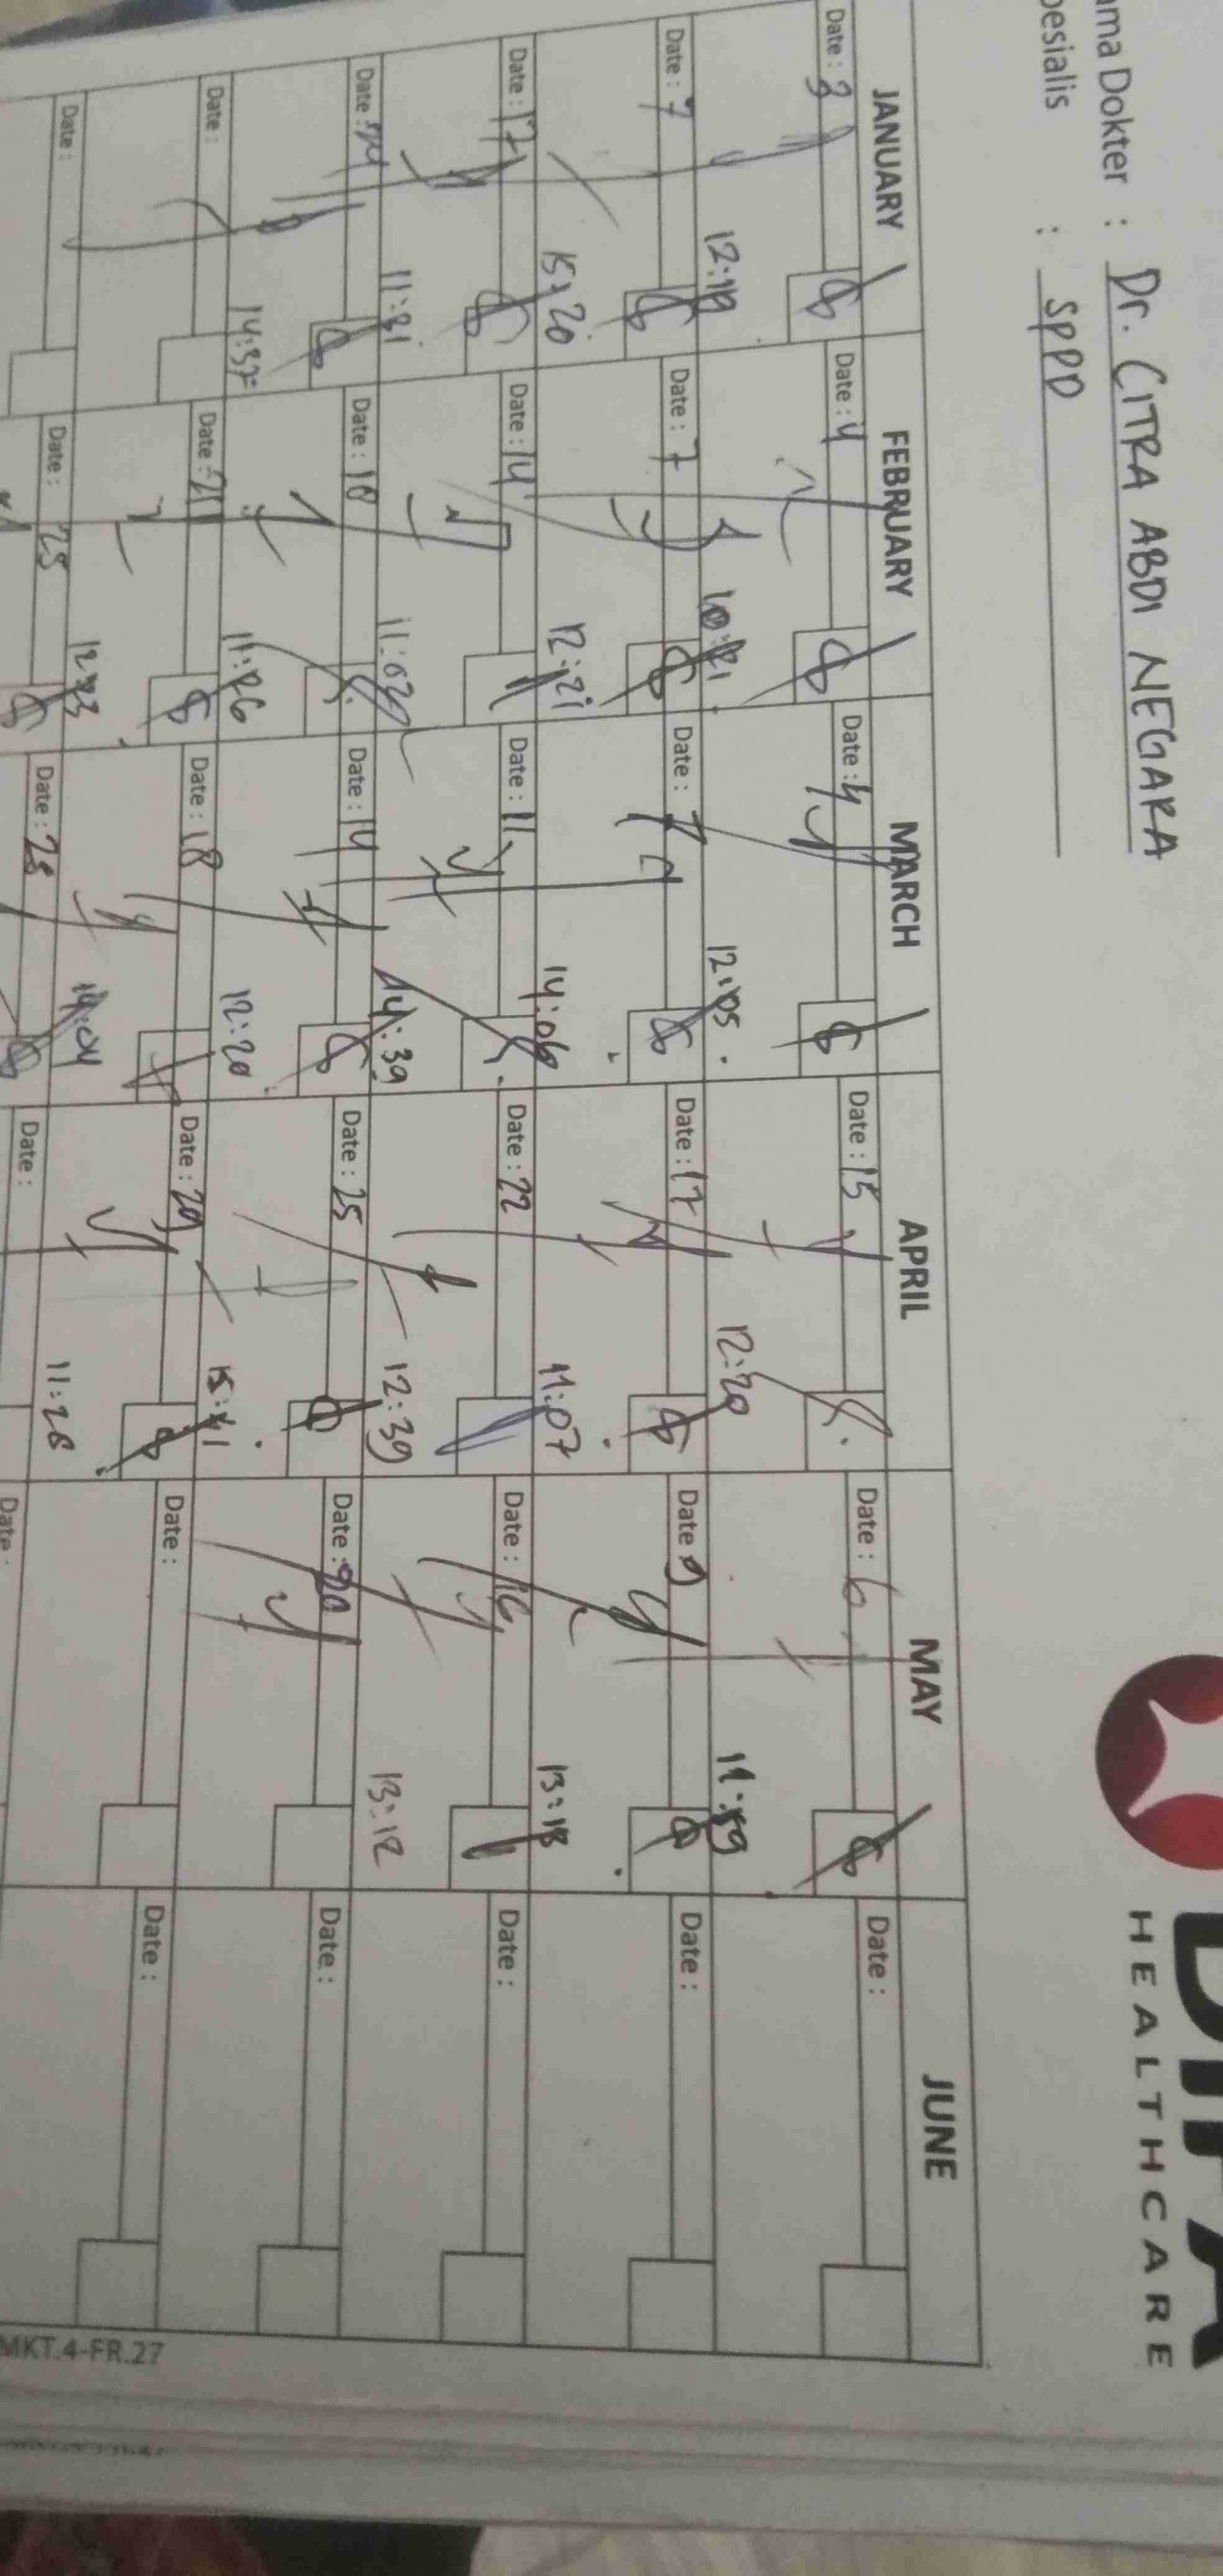 ama Dokter : Dr. CITRA ABDI NEGARA
pesialis : SPPD
HEALTHCARE
JANUARY FEBRUARY MARCH APRIL MAY JUNE
Date : 3 Date : 4 Date : 4 Date : 15 Date : 6 Date :
12:05 12:20 11:59
Date : 7 Date : 7 Date : 7 Date : 17 Date 9 Date :
15:20 12:21 14:06 11:07 13:18
Date : 17 Date : 14 Date : 11 Date : 22 Date : 16 Date :
11:31 11:02 14:39 12:39 13:12
Date : Date : 18 Date : 14 Date : 25 Date : 20 Date :
14:37 11:26 12:20 15:41
Date : Date : 21 Date : 18 Date : 29 Date : Date :
12:23 14:04 11:28
Date : Date : 25 Date : 25 Date : Date :
MKT.4-FR.27